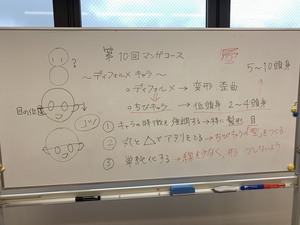 第10回マンガコース
～ディフォルメキャラ～
5～10頭身
・ディフォルメ→変形 歪曲
・ちびキャラ→低頭身 2～4頭身
目の位置
コツ
① キャラの特徴を強調する→特に髪形 目
② 丸と△でアタリをとる→ちびキャラの型をつくる
③ 単純化する→線を少なく、形 プレないよう